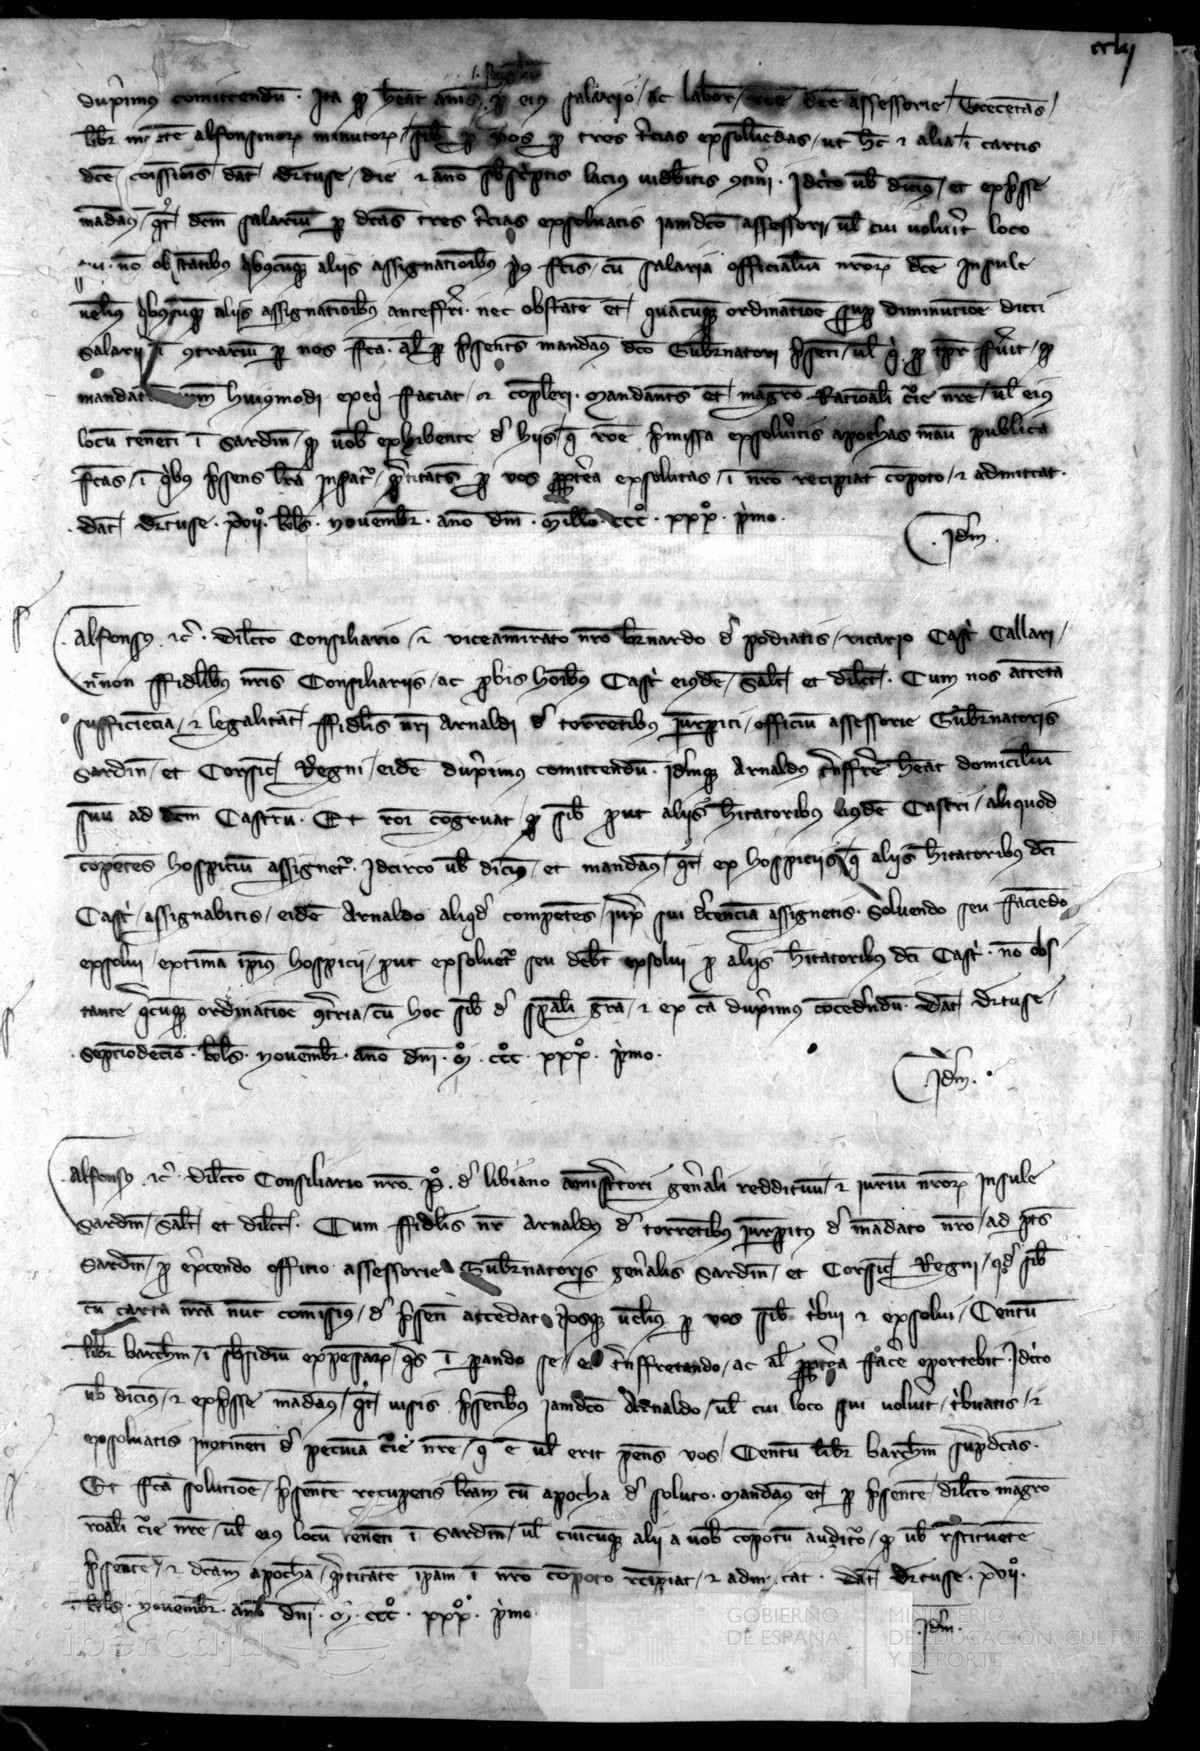 cxlij
singulis
duximus comittendum. Ita q̄ heat annis pro eius salario ac labore roẽ dcẽ assessorie Trecentas
libr monete alfonsinorum minutorum sibi per vos per tres tercias exsoluendas, ut hec & alia in cartis
dcẽ comissionis dat Dertuse die & anno subscriptis lacius videbitis contineri. Idcirco vob dicimus et expresse
mandamus qt dcm salarium per dcas tres tercias exsoluatis iamdco assessori ul cui voluerit loco
sui non obstantibus quibuscumque aliis assignationibus prius fcis cum salaria officialium nrorum dce Insule
velimus quibuscumque aliis assignationibus anteferri. nec obstante et quacumque ordinatione super diminutione dicti
salarii in contrarium per nos fca. al per presentes mandamus dco Gubernatori presenti ul qui pro tpr fuerit q
mandatum nrum huiusmodi exequi faciat & compleri. Mandantes et magro Rationali curie nre ul eius
locum tenenti in Sardin q vob exhibente de hiis que roe premissa exsolueritis apochas manu publica
fcas in quibus presens lra inseratur quantitates per vos propterea exsolutas in nro recipiat compoto & admittat.
dat Dertuse. xvii. kls. Novembr. anno dni. Millo. CCC. xxx. primo.
Idm.
Alfonsus etc. Dilecto Consiliario & viceamirato nro Bernardo de podiatis vicario Castri Callari
necnon fidelibus nris Consiliariis ac probis hominibus Castri eiusdem Salt et dilect. Cum nos attenta
sufficiencia & legalitate fidelis nri Arnaldi de torrentibus jurisperiti officium assessorie Gubernatoris
Sardin et Corsice Regni eidem duximus comittendum. Idemque Arnaldus transfferre heat domicilium
suum ad dcm Castrum. Et roi congruat q sibi put aliis habitatoribus eiusdem Castri aliquod
competens hospicium assignetur. Idcirco vob dicimus et mandamus qt ex hospiciis que aliis habitatoribus dci
Castri assignabitis eidem Arnaldo aliquod competens juxta sui decenciam assignetis. Soluendo seu faciendo
exsolui extima ipius hospicii put exsoluetur seu debet exsolui per aliis habitatoribus dci Castri. non obs
tante quacumque ordinatione contraria cum hoc sibi de speciali gra & ex ca duximus concedendum. Dat Dertuse
septimodecimo. kls. Novembr. anno dni. M. CCC. xxx. primo.
Idm.
Alfonsus etc. Dilecto Consiliario nro. P. de libiano aministratori generali reddituum & iurium nrorum Insule
Sardin Salt et dilect. Cum fidelis nr Arnaldus de torrentibus jurisperitus de mandato nro ad partes
Sardin pro exercendo officio assessorie Gubernatoris generalis Sardin et Corsice Regni quod sibi
cum carta nra nunc comisimus de presenti accedat Nosque velimus per vos sibi tribui & exsolui Centum
libr barchin in subsidium expensarum quas in parando se et transffretando ac al propterea facere oportebit. Idcirco
vob dicimus & expresse mandamus qt visis presentibus iamdco Arnaldo ul cui loco sui voluerit tribuatis &
exsoluatis incontinenti de pecunia curie nre que e ul erit penes vos Centum libr barchin supradcas.
Et fca solutione presentem recuperetis literam cum apocha de soluto. Mandamus et per presentem dilecto magro
roali curie nre ul eius locum tenenti in Sardin ul cuicumque alii a vob compotum audituro q vob restituente
presentem & dcam apocham quantitatem ipam in nro compoto recipiat & admittat. Dat Dertuse. xvii.
kls. Novembr. anno dni. M. CCC. xxx. primo.
Idm.
iberCaja
GOBIERNO DE ESPAÑA
MINISTERIO DE EDUCACIÓN, CULTURA Y DEPORTE